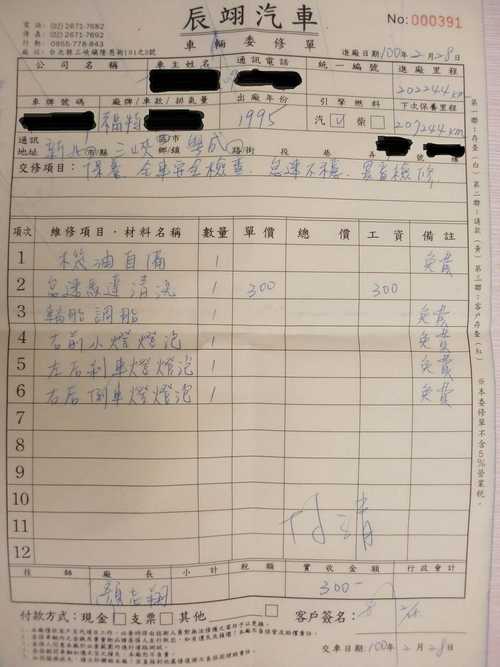 電話:(02)2671-7682
傳真:(02)2671-7692
行動:0955-778-843
廠址:台北縣三峽鎮隆恩街191之2號
辰翊汽車
車輛委修單
No:000391
進廠日期:100年2月28日
公司名稱 車主姓名 通訊電話 統一編號 進廠里程
202244km
車牌號碼 廠牌/車款/排氣量 出廠年份 引擎燃料 下次保養里程
福特 1995 汽 V 柴 207244km
通訊地址 新北市縣 三峽 鄉鎮 學成 路街 段 巷 弄 號 樓
交修項目:保養 全車安全檢查、怠速不穩
項次 維修項目・材料名稱 數量 單價 總價 工資 備註
1 機油自備 1 免費
2 怠速馬達清洗 1 300 300
3 輪胎調胎 1 免費
4 右前小燈燈泡 1 免費
5 左右剎車燈燈泡 1 免費
6 右后倒車燈燈泡 1 免費
7
8
9
10
11
12
付清
技師 廠長 小計 稅額 實收金額 行政會計
300-
付款方式:現金 支票 其他
客戶簽名:
交車日期:100年2月28日
第一聯:存查(白) 第二聯:請款(黃) 第三聯:客戶存查(紅)
※本委修單不含5%營業稅。